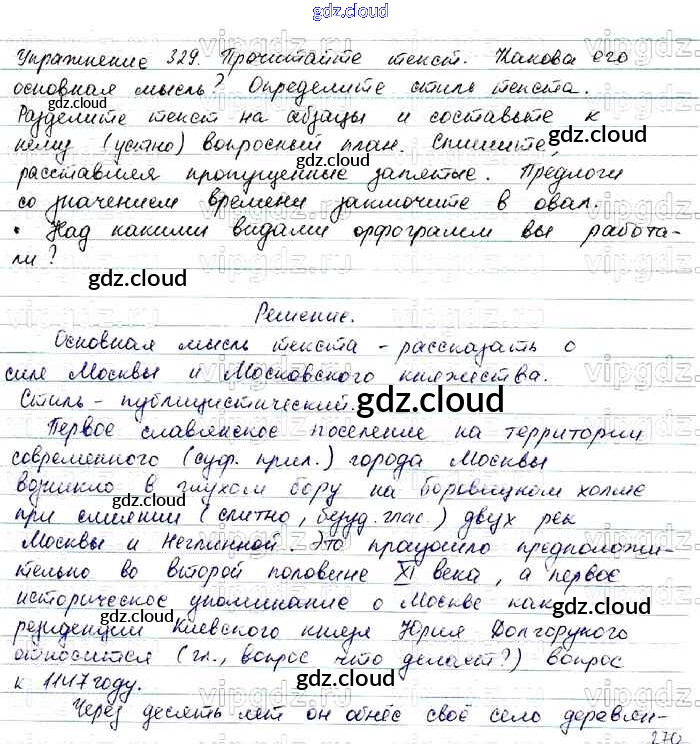 gdz.cloud
Упражнение 329. Прочитайте текст. Какова его
основная мысль? Определите стиль текста.
gdz.cloud gdz.cloud
Разделите текст на абзацы и составьте к
нему (устно) вопросный план. Спишите,
gdz.cloud
расставляя пропущенные запятые. Предлоги
gdz.cloud
со значением времени заключите в овал.
• Над какими видами орфограмм вы работа-
ли?
gdz.cloud
Решение.
Основная мысль текста - рассказать о
силе Москвы и Московского княжества.
Стиль - публицистический.
gdz.cloud
Первое славянское поселение на территории
современного (суф. прил.) города Москвы
gdz.cloud
возникло в глухом бору на Боровицком холме
при слиянии (слитно, безуд. глас.) двух рек
gdz.cloud
Москвы и Неглинной. Это произошло предположи-
тельно во второй половине XI века, а первое
историческое упоминание о Москве как
gdz.cloud
резиденции Киевского князя Юрия Долгорукого
относится (гл., вопрос что делает?) вопрос
gdz.cloud
к 1147 году.
Через десять лет он обнёс своё село деревян-
270